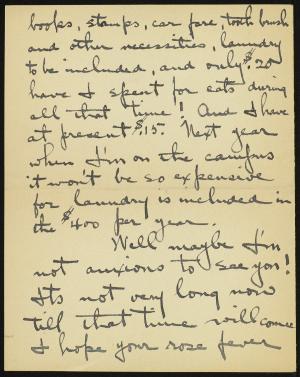 books, stamps, car fare, tooth brush
and other necessities, laundry
to be included, and only $.20
have I spent for eats during
all that time! And I have
at present $.15. Next year
when I'm on the campus
it won't be so expensive
for laundry is included in
the $400 per year.
Well maybe I'm
not anxious to see you!
Its not very long now
till that time will come
I hope your rose fever